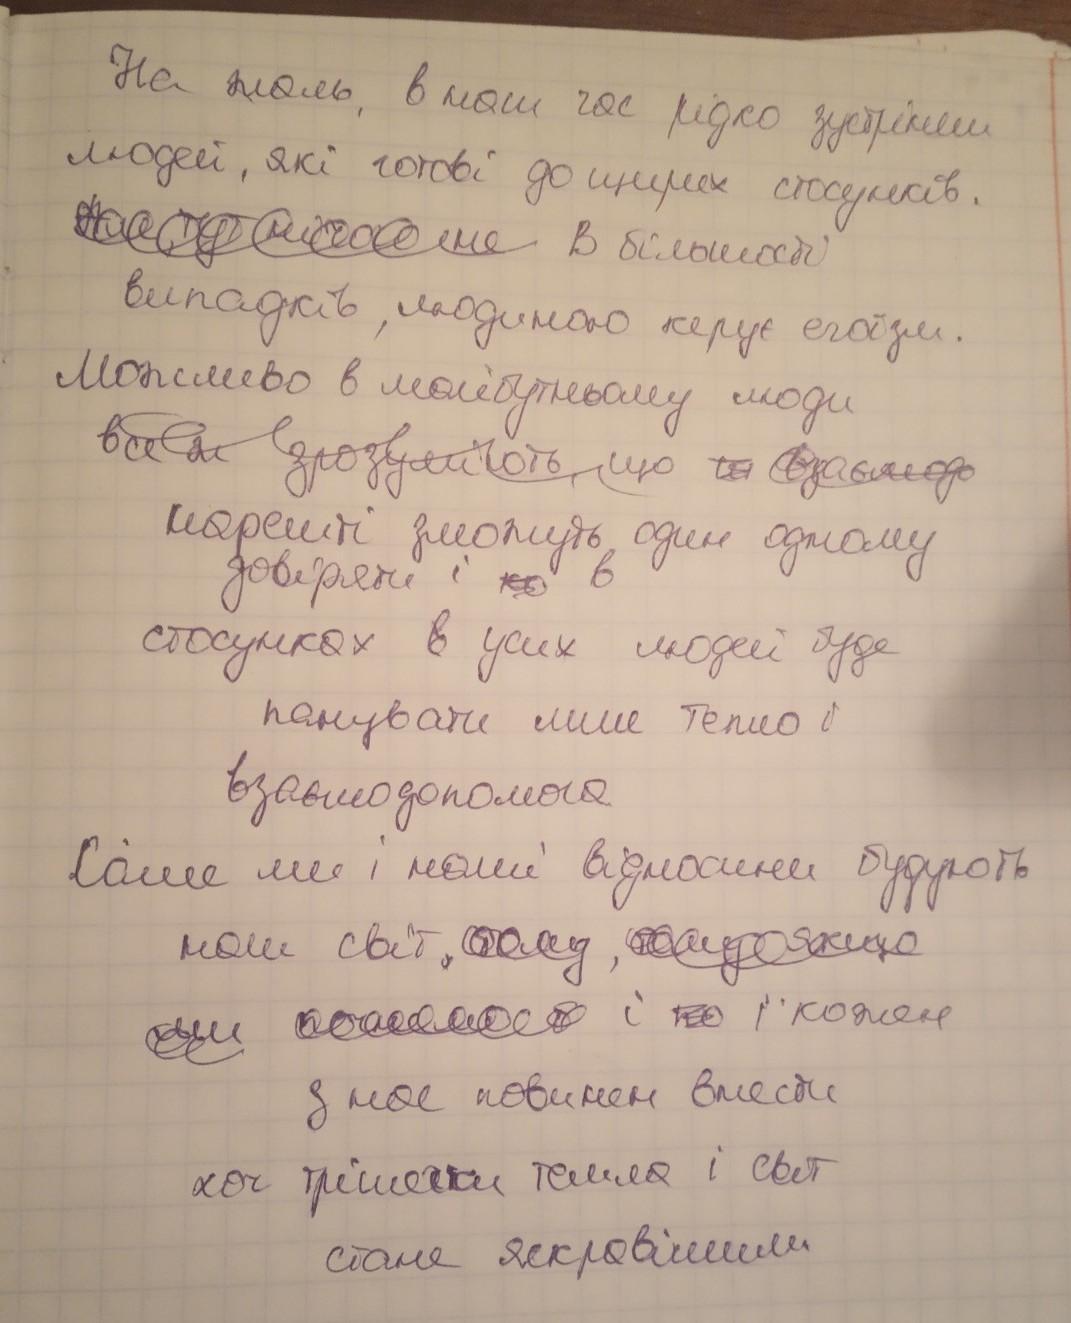 На жаль, в наш час рідко зустрінеш
людей, які готові до щирих стосунків.
В більшості
випадків, людиною керує егоїзм.
Можливо в майбутньому люди
все ж зрозуміють, що
нарешті зможуть один одному
довіряти і в
стосунках в усих людей буде
панувати лише тепло і
взаємодопомога
Саме ми і наші відносини будують
наш світ, тому,
і і кожен
з нас повинен внести
хоч трішечки тепла і світ
стане яскравішим